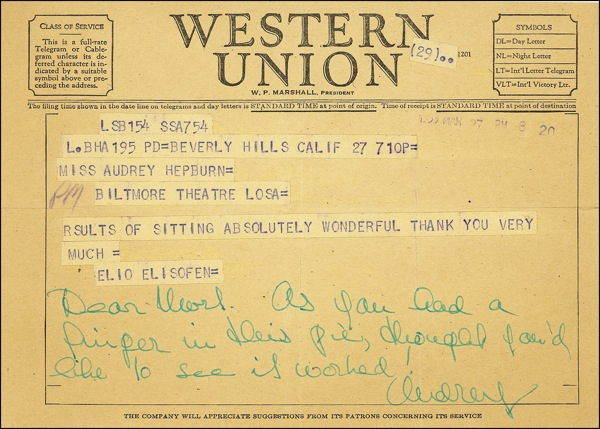 CLASS OF SERVICE
This is a full-rate
Telegram or Cable-
gram unless its de-
ferred character is in-
dicated by a suitable
symbol above or pre-
ceding the address.
WESTERN
UNION
W. P. MARSHALL, PRESIDENT
(29)..
1201
SYMBOLS
DL=Day Letter
NL=Night Letter
LT=Int'l Letter Telegram
VLT=Int'l Victory Ltr.
The filing time shown in the date line on telegrams and day letters is STANDARD TIME at point of origin. Time of receipt is STANDARD TIME at point of destination
LSB154 SSA754
27 8 20
L.BHA195 PD=BEVERLY HILLS CALIF 27 710P=
MISS AUDREY HEPBURN=
BILTMORE THEATRE LOSA=
RSULTS OF SITTING ABSOLUTELY WONDERFUL THANK YOU VERY
MUCH=
ELIO ELISOFEN=
Dear Mort. As you had a
finger in this pie, thought you'd
like to see it worked!
Audrey
THE COMPANY WILL APPRECIATE SUGGESTIONS FROM ITS PATRONS CONCERNING ITS SERVICE